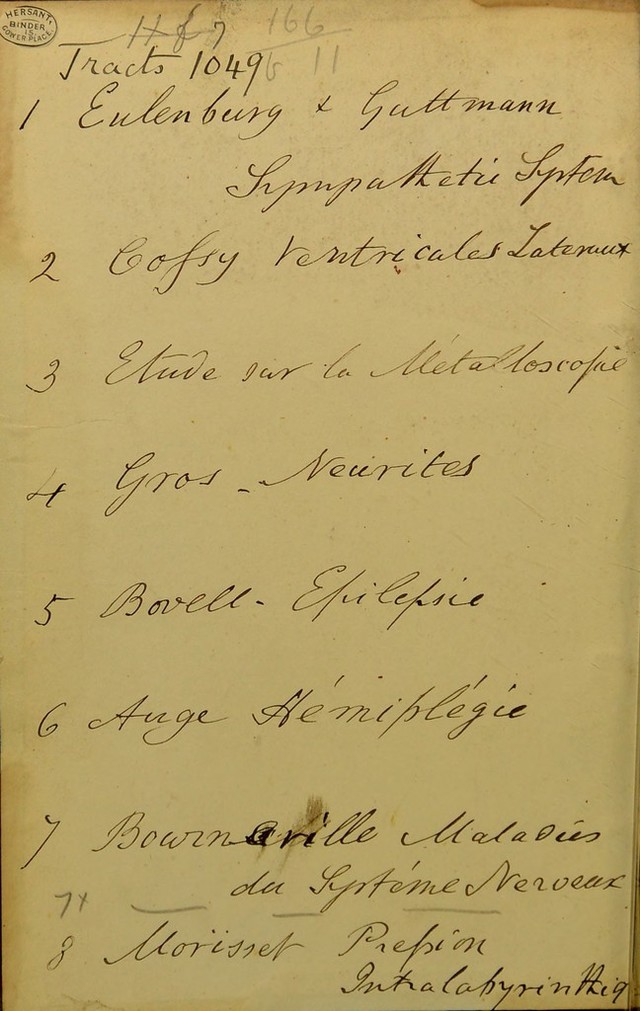 HERSANT,
BINDER
15
GOWER PLACE.
166
11
Tracts 1049
1 Eulenburg & Guttmann
Sympathetic System
2 Cossy Ventricales Lateraux
3 Etude sur la Métalloscopie
4 Gros - Neurites
5 Bovell - Epilepsie
6 Auge Hémiplégie
7 Bourneville Maladies
du Systéme Nerveux
7+
8 Morisset Pression
Intralabyrinthiq